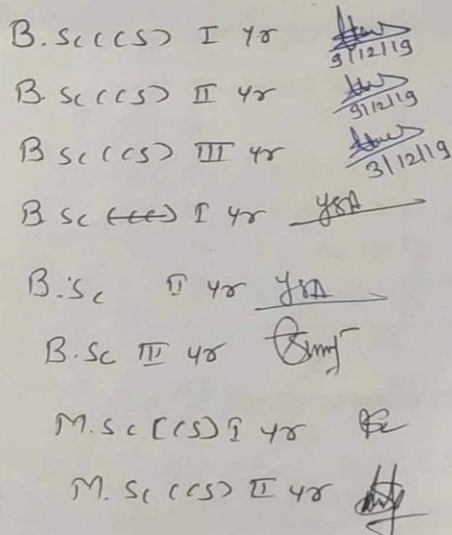 B.Sc (CS) I yr 9/12/19
B.Sc (CS) II yr 9/12/19
B Sc (CS) III yr 3/12/19
B Sc I yr
B.Sc II yr
B.Sc III yr
M.Sc (CS) I yr
M.Sc (CS) II yr